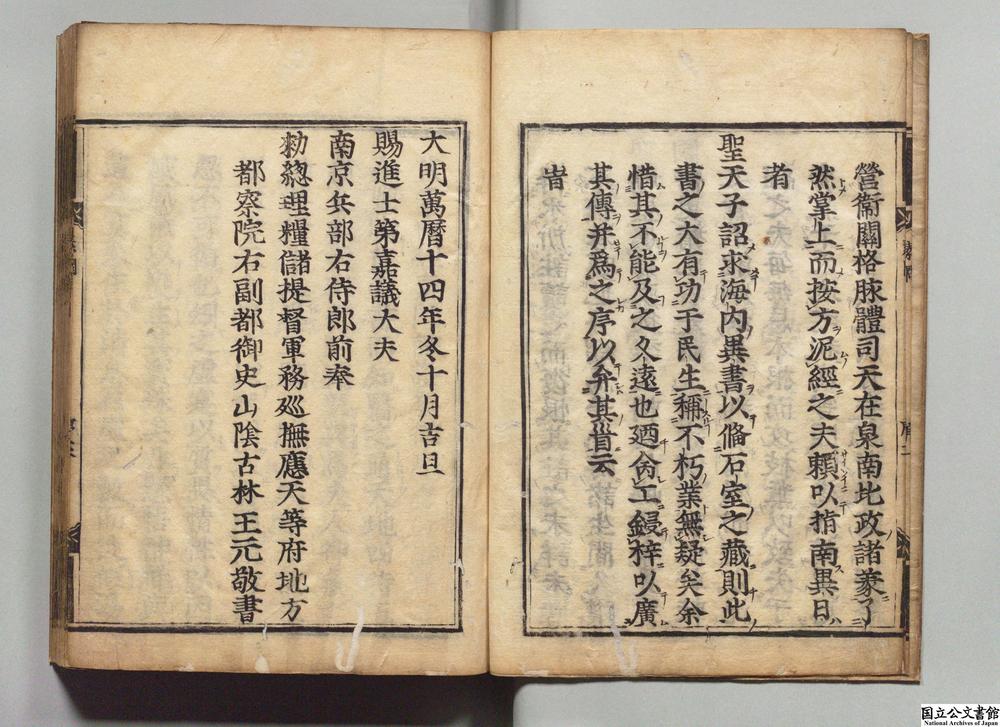 營衞關格脉體司天在泉南北政諸彖了
然掌上而按方泥經之夫頼以指南異日
者
聖天子詔求海内異書以俻石室之藏則此
書之大有功于民生稱不朽業無疑矣余
惜其不能及之久遠也廼命工鋟梓以廣
其傳并爲之序以弁其首云
旹
大明萬曆十四年冬十月吉旦
賜進士第嘉議大夫
南京兵部右侍郎前奉
勑總理糧儲提督軍務廵撫應天等府地方
都察院右副都御史山陰古林王元敬書
国立公文書館
National Archives of Japan